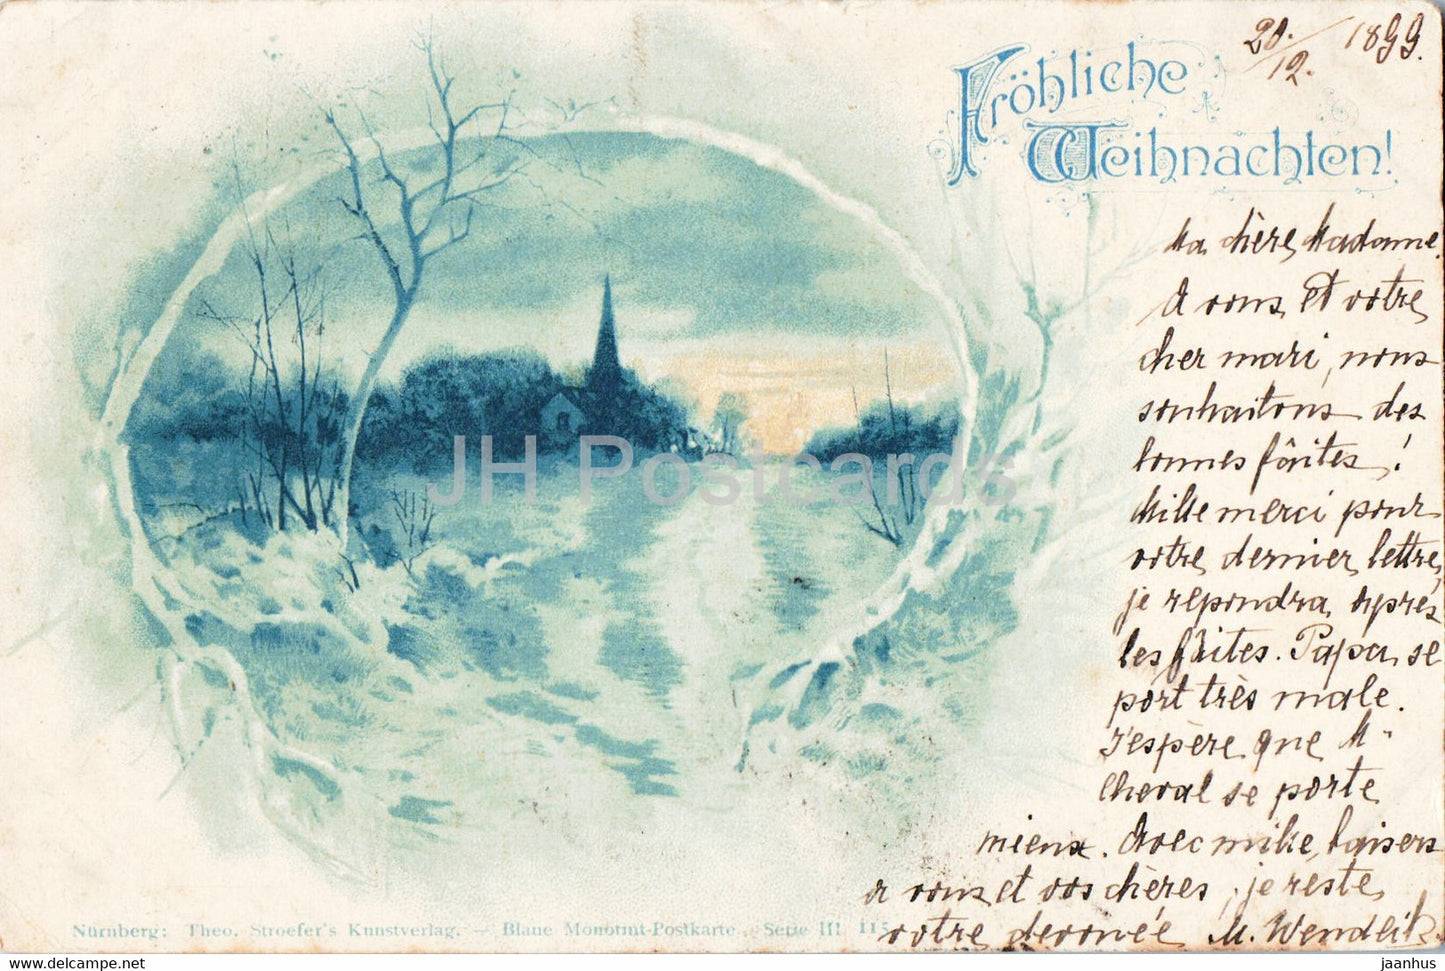 20./12. 1899.
Fröhliche
Weihnachten!
Ma chère Madame.
A vous et votre
cher mari, nous
souhaitons des
bonnes fâites!
Mille merci pour
votre dernier lettre,
je repondra après
les fâites. Papa se
port très male.
J'espère que M-
Cheval se porte
mieux. Avec mille baisers
a vous et vos chères, je reste
votre devouée M. Wendlik
JH Postcards
Nürnberg: Theo. Stroefer's Kunstverlag. — Blaue Monotint-Postkarte. Serie III 115
jaanhus